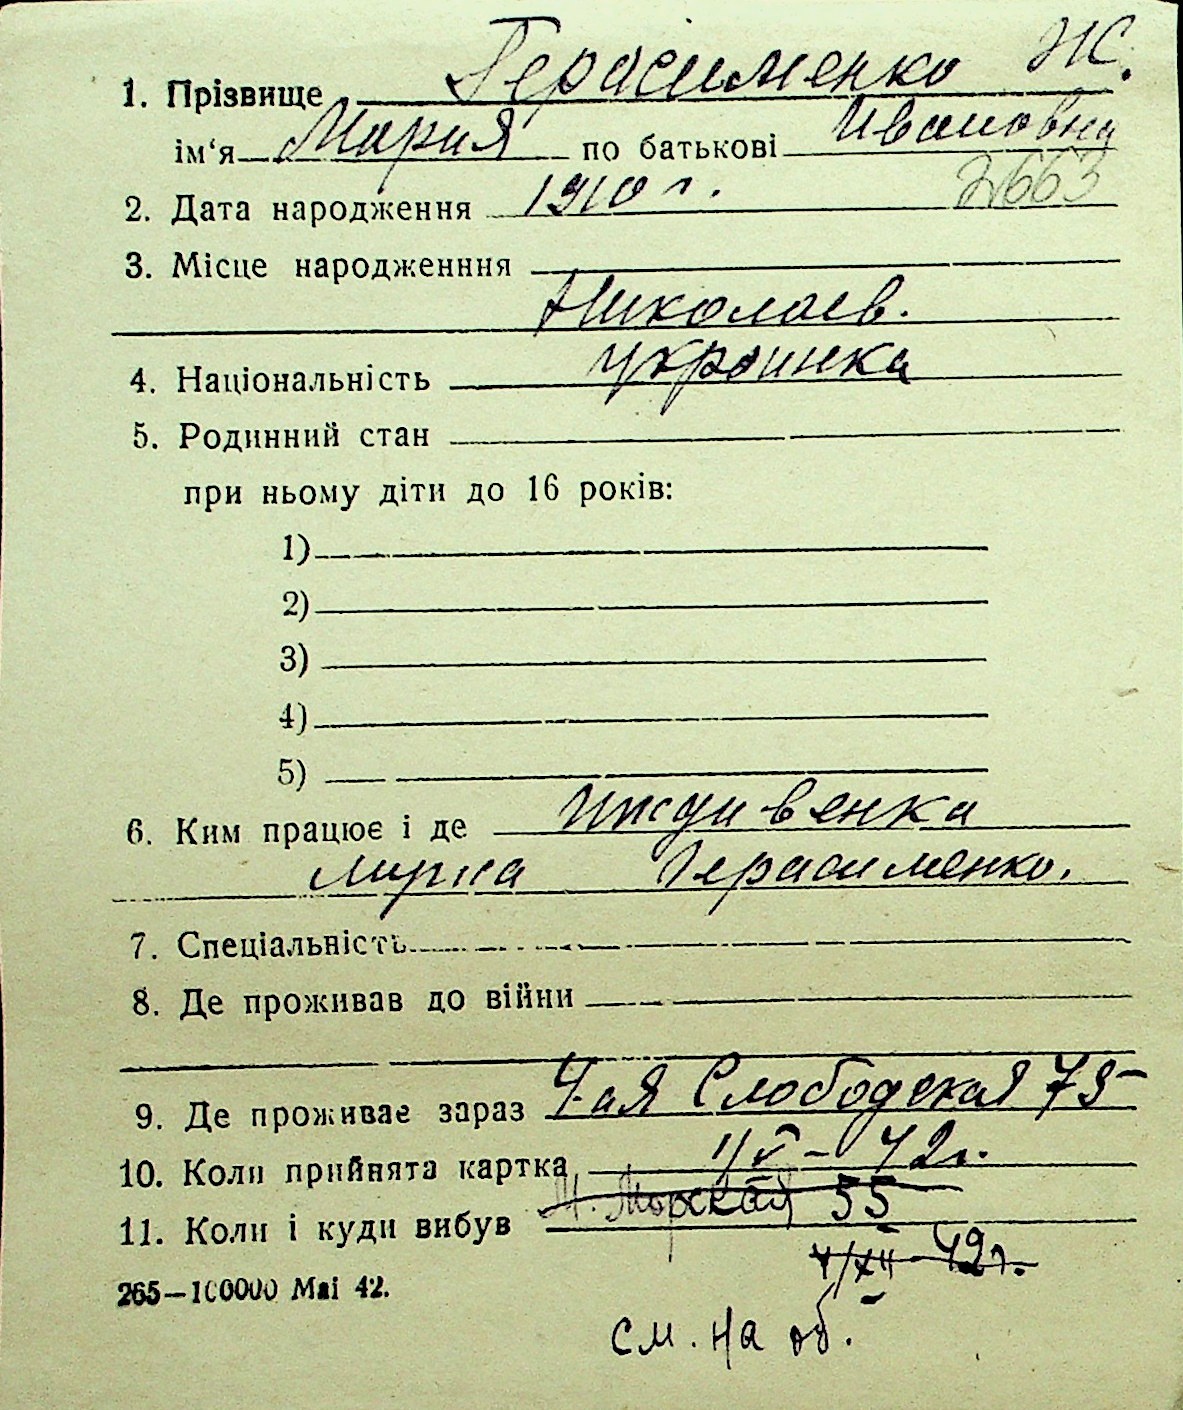 1. Прізвище Герасименко Ж.
ім'я Мария по батькові Ивановна
2. Дата народження 1910 г. 2663
3. Місце народженння
Николаев.
4. Національність украинка
5. Родинний стан
при ньому діти до 16 років:
1)
2)
3)
4)
5)
6. Ким працює і де иждивенка
мужа Герасименко.
7. Спеціальність
8. Де проживав до війни
9. Де проживає зараз 4-ая Слободская 75
10. Коли прийнята картка 1/V - 42г.
М. Морская 55
11. Коли і куди вибув
1/XII-42г.
265—100000 Mai 42.
см. на об.